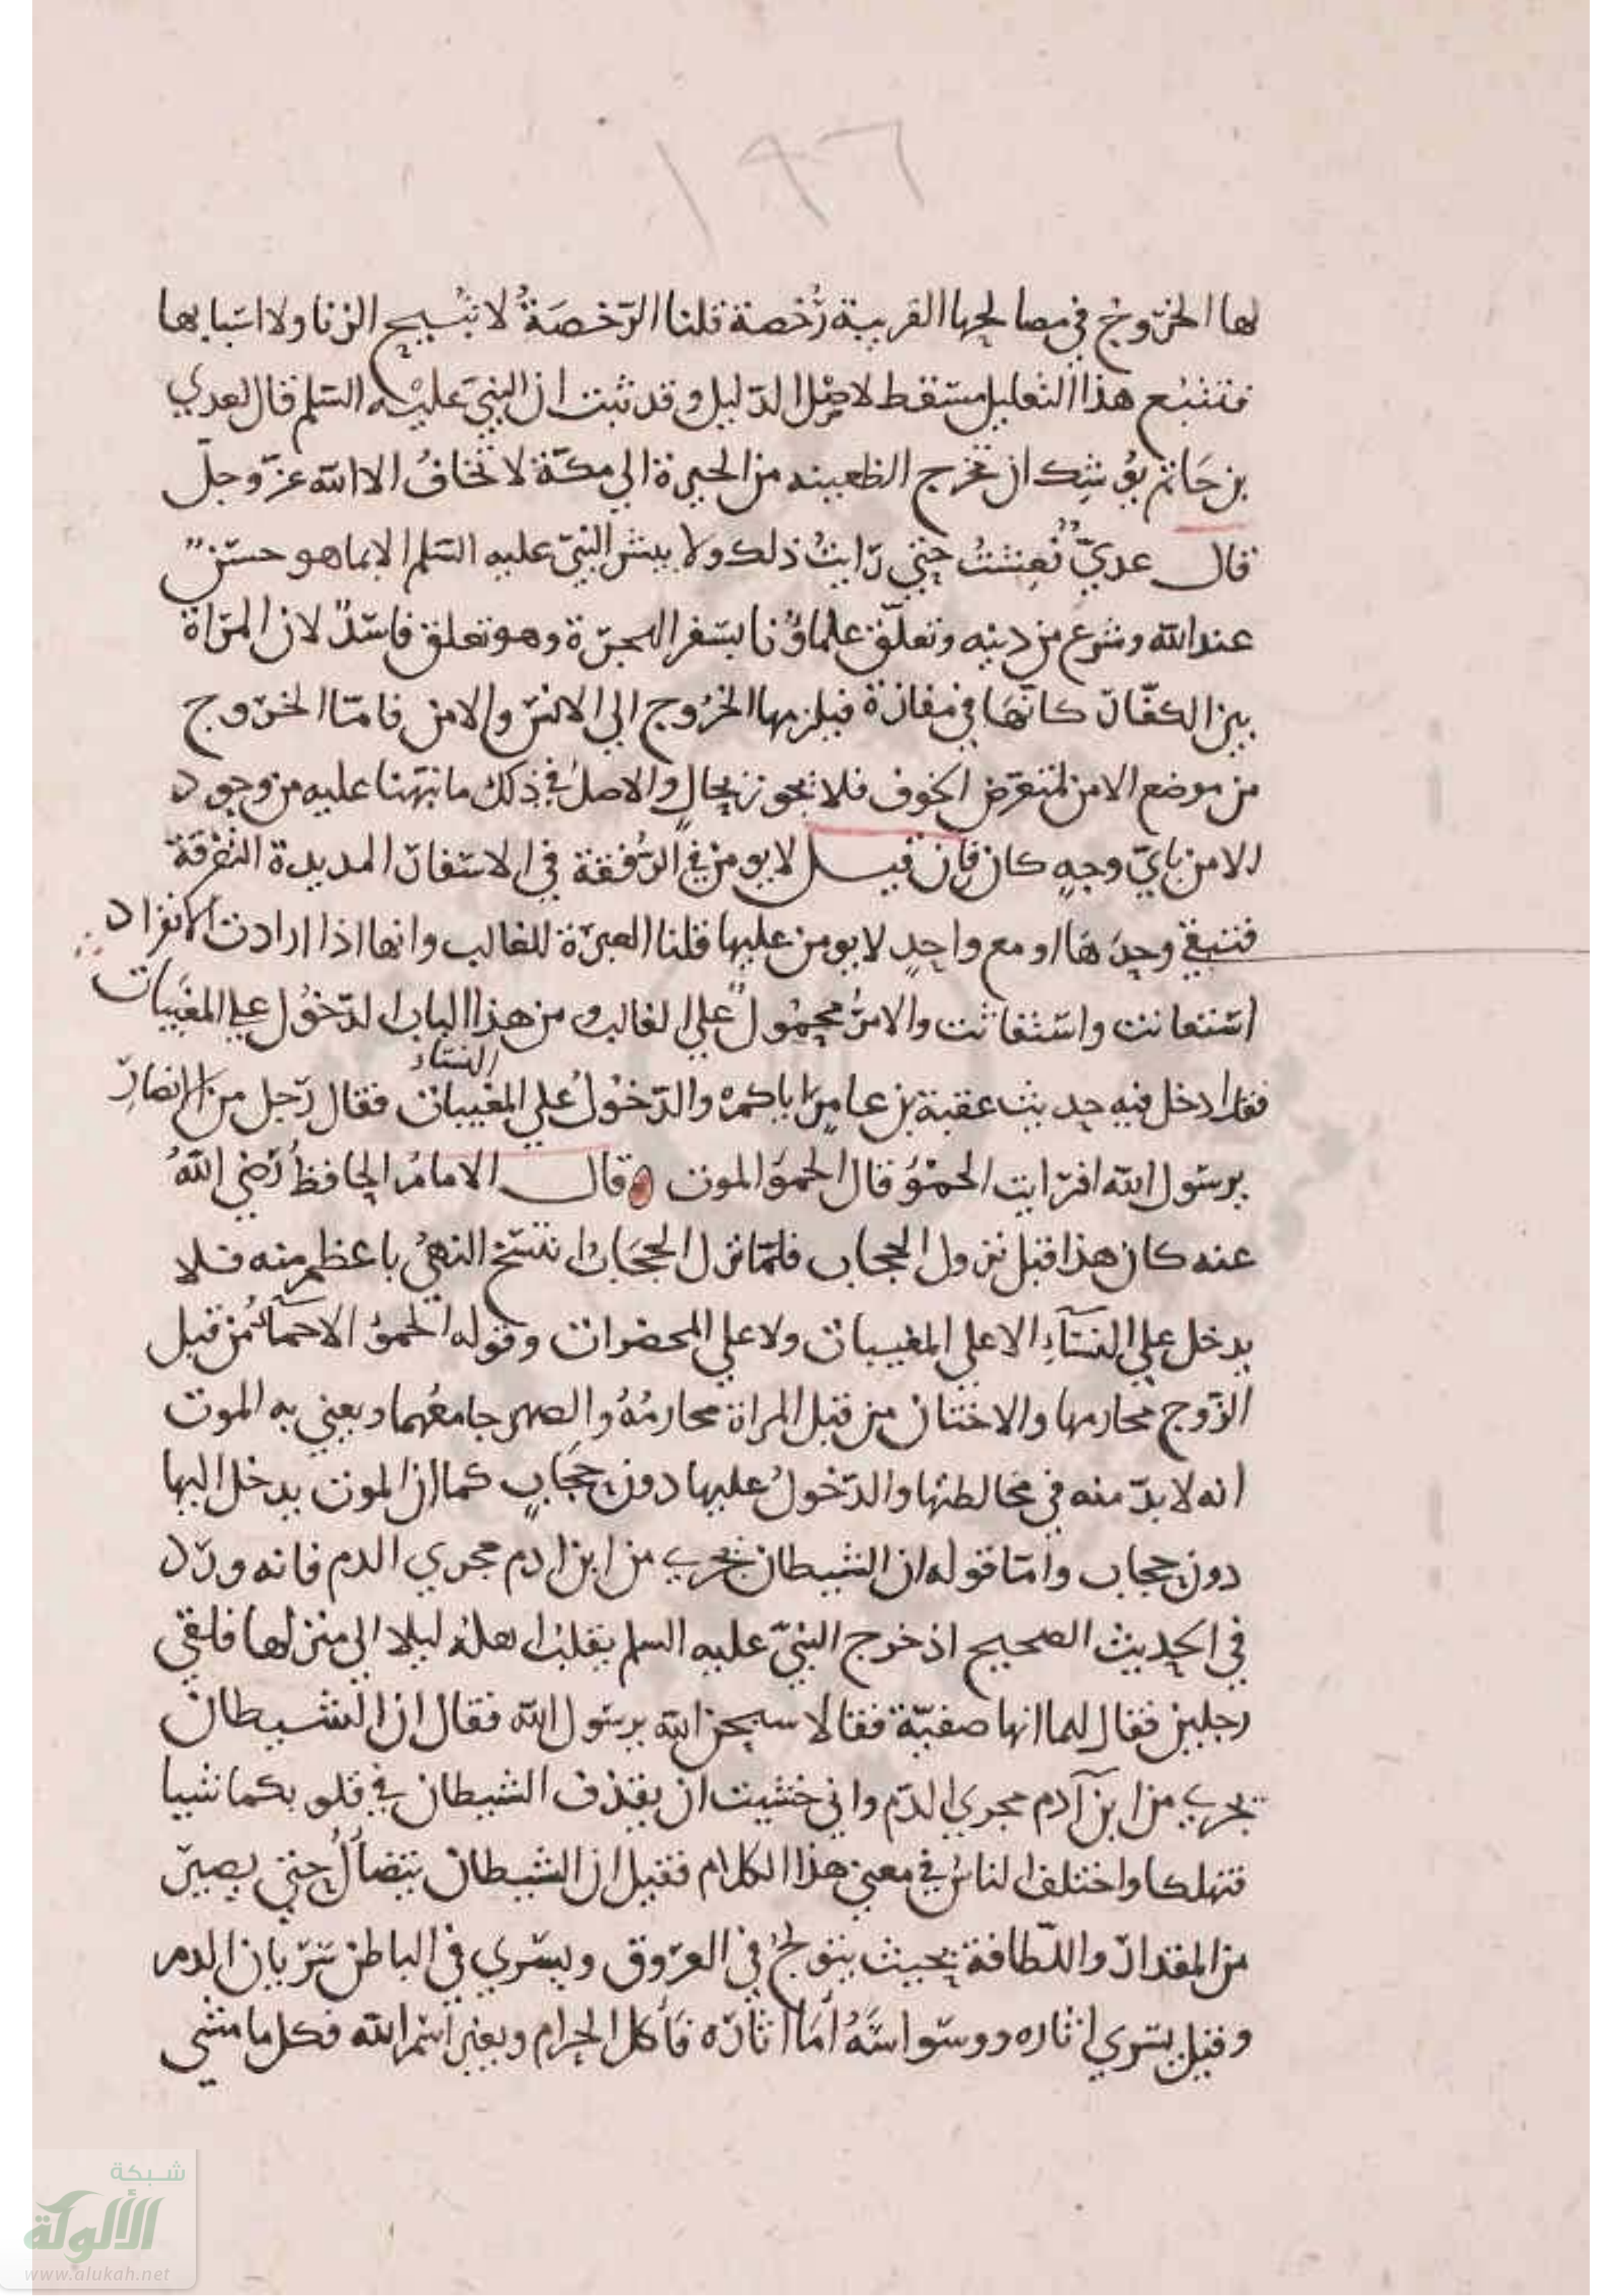 ١٩٦
لها الخروج في مصالحها القريبة رخصة قلنا الرّخصَةُ لا تُبيح الزنا ولا اسبابها
فتتبع هذا التعليل يسقط لاصل الدّليل وقد ثبت ان النبيّ عليه السّلم قال لعدي
بن حَاتم يوُشِك ان تخرج الظعينه من الحيرة الي مكّة لا تخافُ الا الله عزّ وجلّ
قال عديّ فعِشتُ حتي رايتُ ذلك ولا يبشر النبيّ عليه السّلم الا بما هو حسَنٌ
عند الله وشرع من دينه وتعلّق علماوُنا بسَفر الهجرة وهو تعلق فاسدٌ لان المراة
بين الكفّار كانّهَا في مفازة فيلزمها الخرُوج الي الانس والامن فامّا الخروج
من موضع الامن لتتعرّض الخوف فلا تجوز بحالٍ والاصل في ذلك ما نبّهنا عليه من وجود
الامن بايّ وجهٍ كان فان قيل لا يومن في الرُفقة في الاسفار المديدة التفرقة
فتبقي وحدَهَا او مع واحدٍ لا يومن عليها قلنا العبرة للغالب وانها اذا ارادت الانفراد
استعانت واستغاثت والامرُ محمُولٌ علي الغالب ومن هذا الباب الدّخوُل علي المغيبات
النسَاء
فقد ادخل فيه حديث عقبة بن عامر اياكم والدّخوُلُ علي المغيبات فقال رجل من الانصار
يرسَول الله افرايت الحموَ قال الحموَ الموت قال الامامُ الحافظ رَضي اللهُ
عنه كان هذا قبل نزول الحجاب فلمّا نزل الحجَابُ انتسَخ النهيُ باعظم منه فلا
يدخل علي النسَآءِ الا علي المغيبات ولا علي المحضرات وقوله الحموُ الاحمآءُ من قبل
الزّوج محارمها والاختان من قبل المراة محارمُهُ والصهر جامعُهما ويعني به الموت
انه لا بدّ منه في مخالطتها والدّخولُ عليها دون حجَابٍ كما ان الموت يدخل اليها
دون حجاب وامّا قوله ان الشيطان يجري من ابن ادم مجري الدم فانه ورد
في الحديث الصحيح اذ خرج النبيّ عليه السلم يقلبُ اهله ليلا الي منزلها فلقي
رجلين فقال لهما انها صفيّة فقالا سبحن الله يرسَول الله فقال ان الشيطان
يجري من ابن آدم مجري الدّم واني خشيت ان يقذف الشيطان في قلوبكما شيا
فتهلكا واختلف الناسُ في معني هذا الكلام فقيل ان الشيطان يتضألُ حتي يصير
من المقدار واللّطافة بحيث يتولجُ في العروق ويسَري في الباطن سَرَيان الدم
وقيل يسَري اثاره ووسَواسَهُ أمَا اثارَه فأكل الحرام وبغير اسَم الله فكل ما مشي
شبكة
الألوكة
www.alukah.net